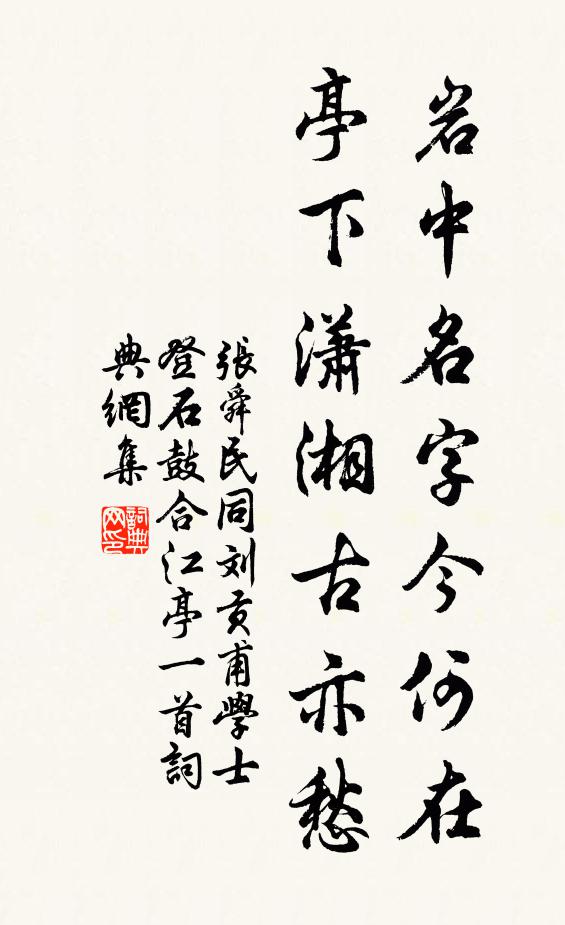 岩中名字今何在
亭下瀟湘古亦愁
張舜民同刘贡甫學士
登石鼓合江亭一首詞
典網集
詞典网印